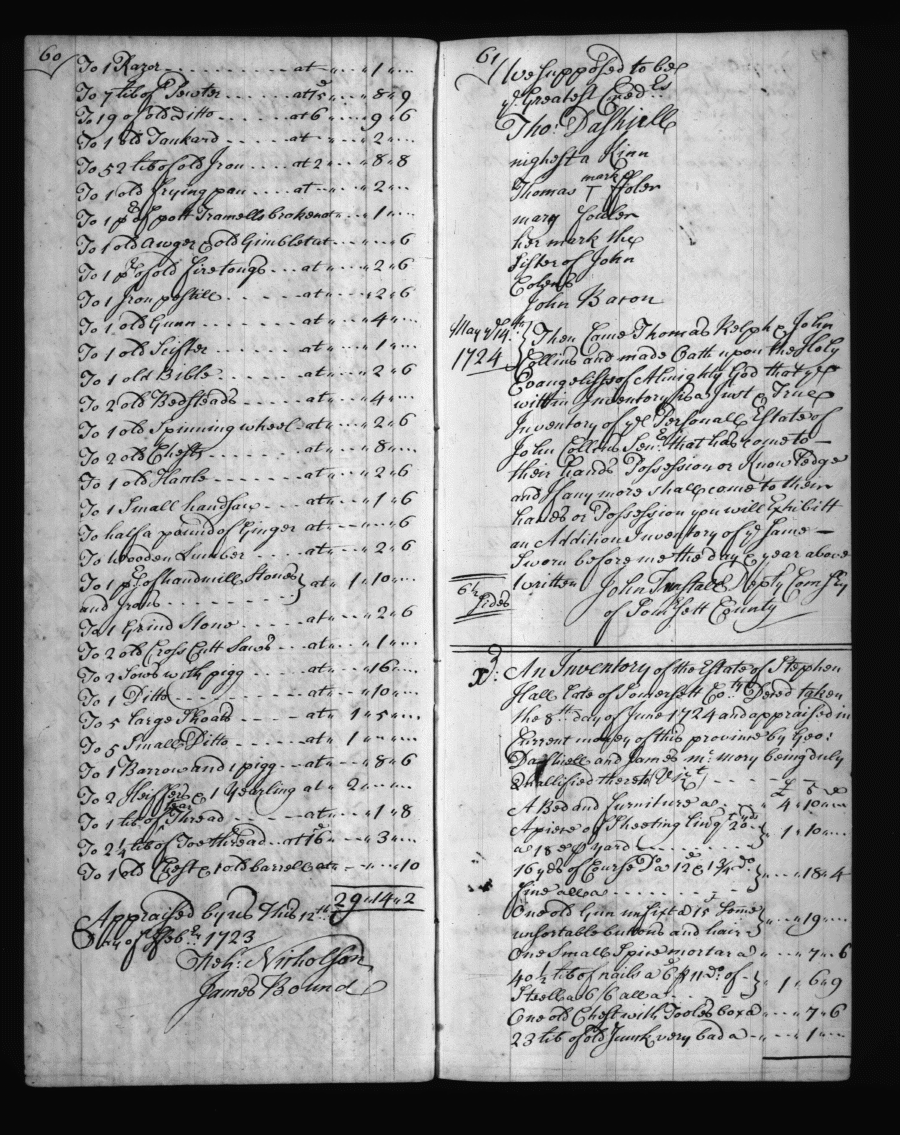 60
To 1 Razor at " " 1 "
To 7 lib of Pewter at 15d " " 8 " 9
To 19 of old Ditto at 6 " 9 " 6
To 1 old Tankard at " " 2 "
To 52 lib of old Iron at 2 " " 8 " 8
To 1 old frying pan at " " 2 "
To 1 pr of pott Tramells broken at " " 1 "
To 1 old Awger & old Gimblet at " " " 6
To 1 pr of old fire tongs at " " 2 " 6
To 1 Iron pestill at " " 2 " 6
To 1 old Gunn at " " 4 "
To 1 old Scifter at " " 1 "
To 1 old Bible at " " 2 " 6
To 2 old Bedsteads at " " 4 "
To 1 old Spinning wheel at " " 2 " 6
To 2 old Chests at " " 8 "
To 1 old at " " 2 " 6
To 1 Small handsaw at " " 1 " 6
To half a pound of Ginger at " " " 6
To Wooden Lumber at " " 2 " 6
To 1 pr of handmill Stones
and Irons at " 1 " 10 "
To 1 Grind Stone " " 2 " 6
To 2 old Cross Cutt Saws at " " 1 "
To 2 Sows with pigg at " " 16 "
To 1 Ditto at " " 10 "
To 5 large Shoats at " 1 " 5 "
To 5 Small Ditto at " 1 " "
To 1 Barrow and 1 pigg at " " 8 " 6
To 2 Heiffers & 1 year Yearling at " 2 " "
To 1 lib of Thread at " " 1 " 8
To 2 1/4 lib of Shoethread at 16d " " 3 "
To 1 old Chest & 1 old barrell at " " " 10
29 " 14 " 2
Appraised by us this 12th
Day of Feb:ry 1723
Neh: Nicholson
James Bound
61
We supposed to be
ye Greatest Cred:ts
Tho: Dashiell
nighest a Kinn
mark
Thomas T ffoler
mary fouler
her mark the
Sister of John
Colens
John Baron
May ye 14th
1724
Then Came Thomas Relph & John
Collins and made Oath upon the Holy
Evangelists of Almighty God that ye
within Inventory is a Just & True
Inventory of ye Personall Estate of
John Collins Senr that has come to
their hands Possession or Knowledge
and if any more shall come to their
hands or Possession you will Exhibitt
an Addition Inventory of ye Same
Sworn before me the day & year above
written John Tunstall Depty Com:sry
of Som:sett County
6 1/2
Sides
Xd: An Inventory of the Estate of Stephen
Hall late of Somersett Co:ty Deced taken
the 8th day of June 1724 and appraised in
Current money of this province by Geo:
Dashiell and James mc:mory being duly
Quallified thereto Vizt £ S d
A Bed and furniture a 4 " 10 "
A piece of Sheeting lin:g 20 yds
a 18d p yard 1 " 10 "
16 yds of Course Do a 12d & 1 3/4 Do
fine all a " " 18 " 4
One old Gunn unfixt a 15s Some
unsortable buttons and hair " " 19 "
One Small Spice mortar a " " 7 " 6
40 1/2 lib of nails a 6d & 11 Do of
Steell a 6/6 all a " 1 " 6 " 9
One old Chest with Tooles box a " " 7 " 6
23 lib of old Junk very bad a " " 1 "